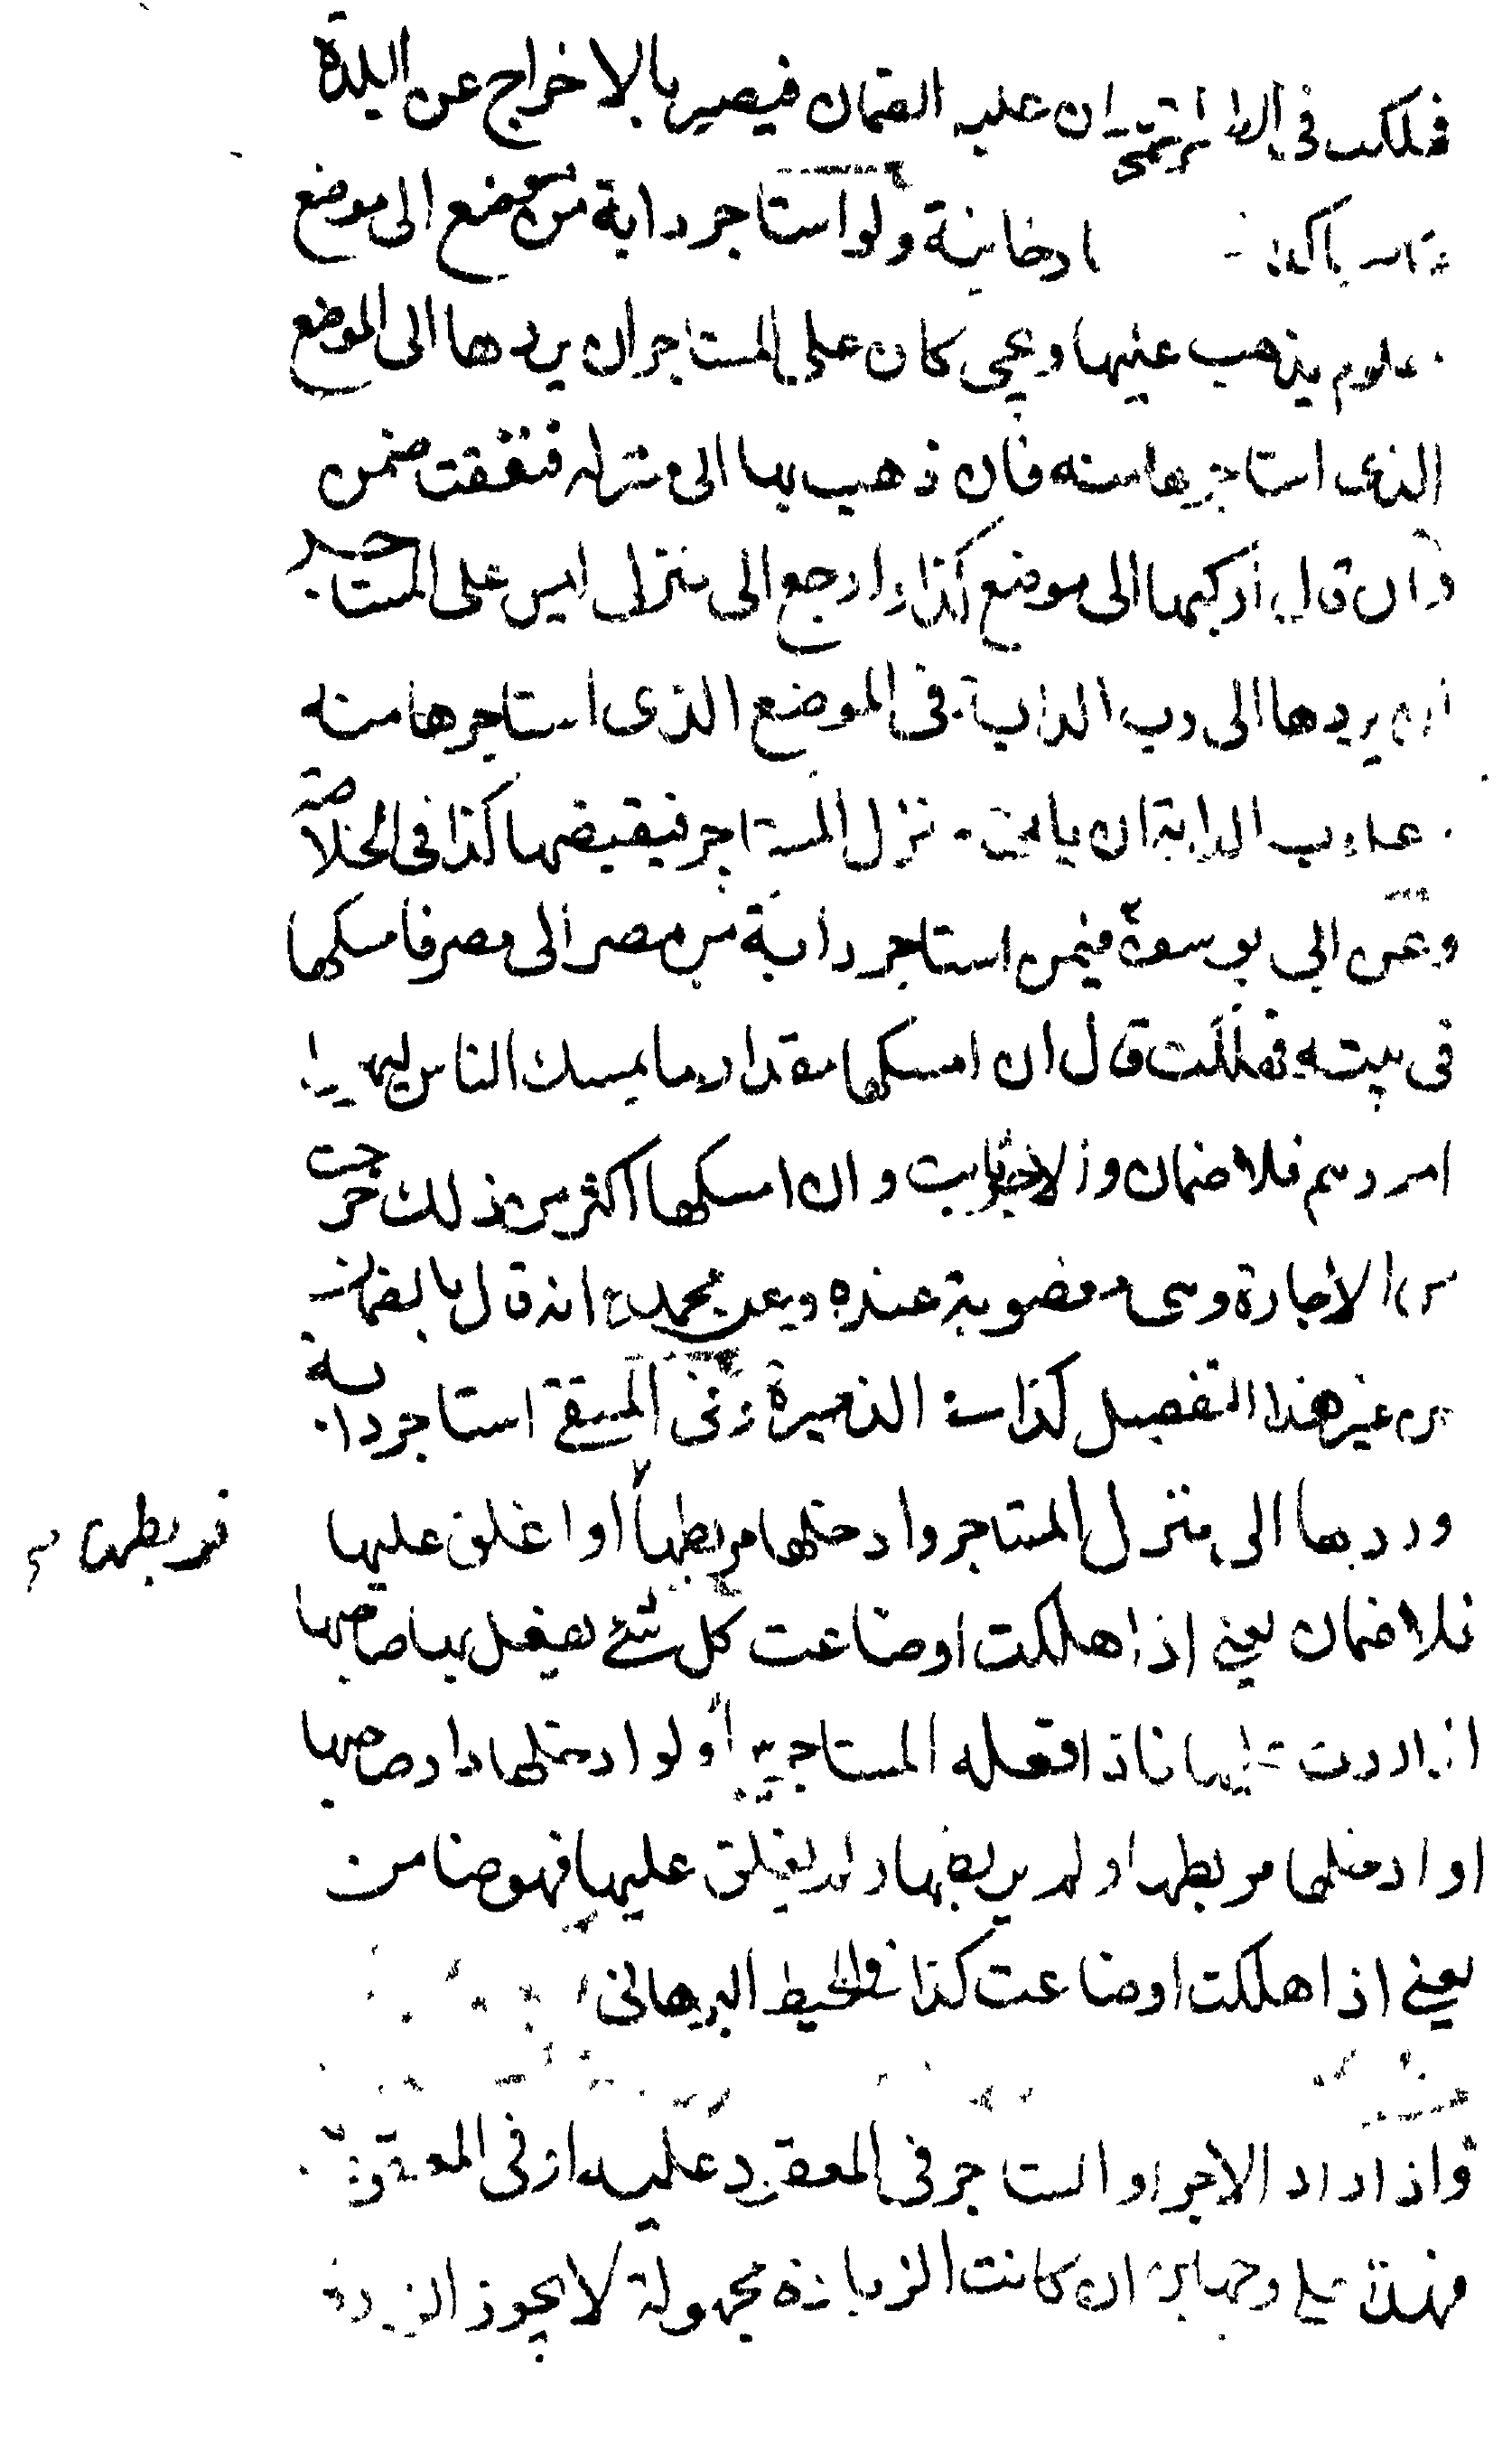 فهلكت في الطريق ان عليه الضمان فيصير بالاخراج عن البلدة
ولو استاجر دابة من موضع الى موضع
معلوم يذهب عليها ويجي كان على المستاجر ان يردها الى الموضع
الذي استاجرها منه فان ذهب بها الى منزله فنفقت ضمن
وان قال اركبها الى موضع كذا وارجع الى منزلي ليس على المستاجر
ان يردها الى رب الدابة في الموضع الذي استاجرها منه
رب الدابة ان ياتي منزل المستاجر فيقبضها كذا في الخلاصة
وعن ابي يوسف فيمن استاجر دابة من مصر الى مصر فامسكها
في بيته فهلكت قال ان امسكها مقدار ما يمسك الناس ليهيوا
امورهم فلا ضمان والاجر ثابت وان امسكها اكثر من ذلك خرجت
من الاجارة وهي مغصوبة عنده وعن محمد انه قال بالضمان
من غير هذا التفصيل كذا في الذخيرة وفي المنتقى استاجر دابة
وردها الى منزل المستاجر وادخلها مربطها او اغلق عليها
فلا ضمان يعني اذا هلكت او ضاعت كل شئ يفعل بها صاحبها
اذا ردت عليه فاذا فعله المستاجر ولو ادخلها دار صاحبها
او ادخلها مربطها ولم يربطها ولم يغلق عليها فهو ضامن
يعني اذا هلكت او ضاعت كذا في المحيط البرهاني
واذا زاد الاجر او المستاجر في المعقود عليه او في المعقود به
فهذا على وجهين ان كانت الزيادة مجهولة لا يجوز الزيادة